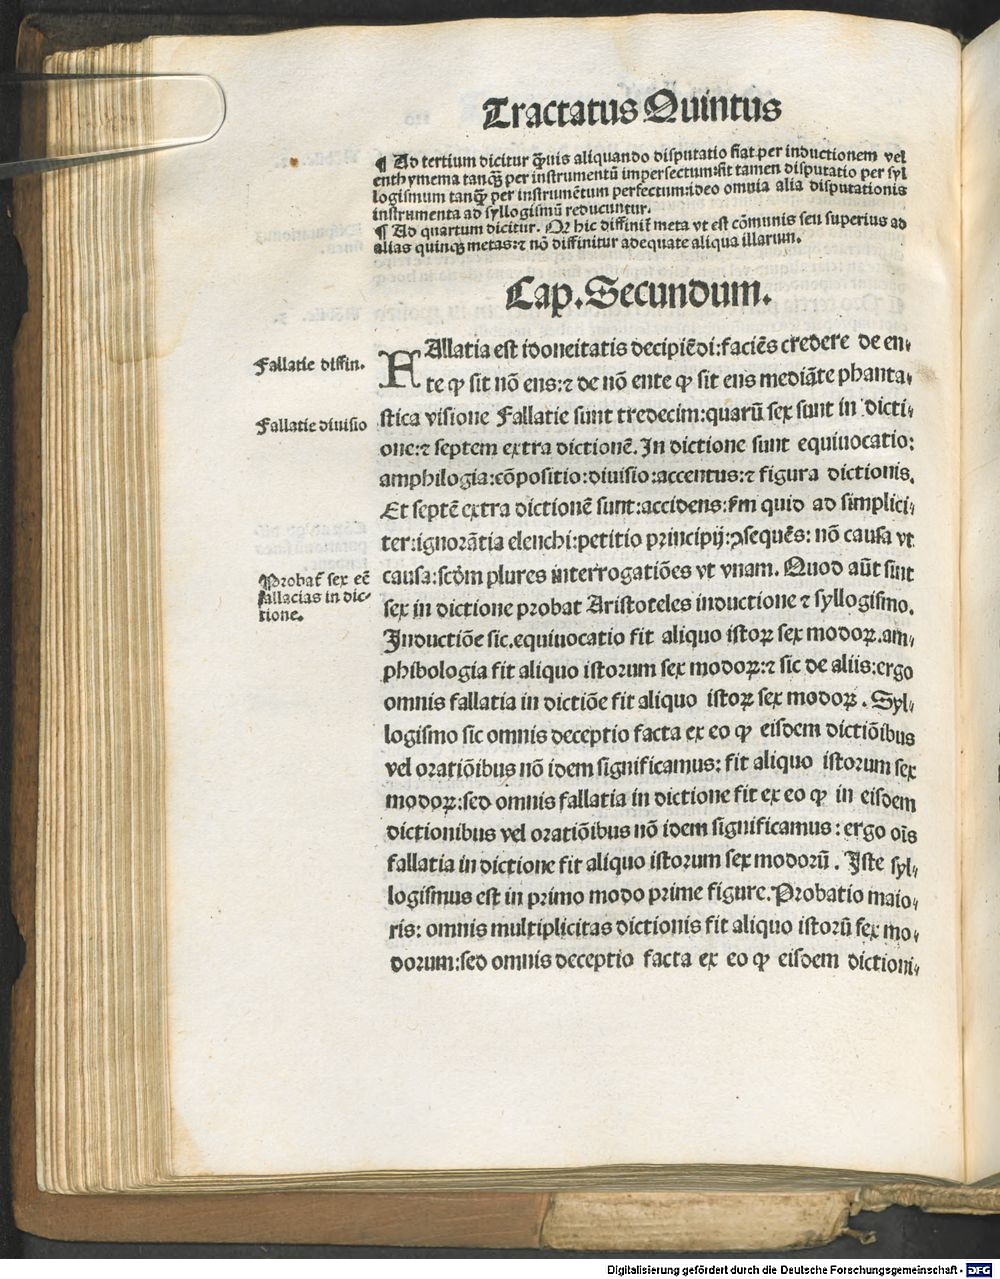 Tractatus Quintus
¶ Ad tertium dicitur ꝙuis aliquando disputatio fiat per inductionem vel
enthymema tanqꝫ per instrumentū imperfectum:sit tamen disputatio per syl
logismum tanqꝫ per instrumētum perfectum:ideo omnia alia disputationis
instrumenta ad syllogismū reducuntur.
¶ Ad quartum dicitur. Qꝛ hic diffinit̄ meta vt est cōmunis seu superius ad
alias quinqꝫ metas:⁊ nō diffinitur adequate aliqua illarum.
Cap. Secundum.
Fallatie diffin.
FAllatia est idoneitatis decipiēdi:faciēs credere de en⸗
te ꝙ sit nō ens:⁊ de nō ente ꝙ sit ens mediāte phanta⸗
Fallatie diuisio
stica visione Fallatie sunt tredecim:quarū sex sunt in dicti⸗
one:⁊ septem extra dictionē. In dictione sunt equiuocatio:
amphilogia:cōpositio:diuisio:accentus:⁊ figura dictionis.
Et septē extra dictionē sunt:accidens:ẜm quid ad simplici⸗
ter:ignorātia elenchi:petitio principij:ꝯsequēs: nō causa vt
Probat̄ sex eē
fallacias in dic⸗
tione.
causa:scd̄m plures interrogatiōes vt vnam. Quod aūt sint
sex in dictione probat Aristoteles inductione ⁊ syllogismo.
Inductiōe sic.equiuocatio fit aliquo istoꝝ sex modoꝝ.am⸗
phibologia fit aliquo istorum sex modoꝝ:⁊ sic de aliis:ergo
omnis fallatia in dictiōe fit aliquo istoꝝ sex modoꝝ. Syl⸗
logismo sic omnis deceptio facta ex eo ꝙ eisdem dictiōibus
vel oratiōibus nō idem significamus: fit aliquo istorum sex
modoꝝ:sed omnis fallatia in dictione fit ex eo ꝙ in eisdem
dictionibus vel oratiōibus nō idem significamus: ergo oīs
fallatia in dictione fit aliquo istorum sex modorū. Iste syl⸗
logismus est in primo modo prime figure. Probatio maio⸗
ris: omnis multiplicitas dictionis fit aliquo istorū sex mo⸗
dorum:sed omnis deceptio facta ex eo ꝙ eisdem dictioni⸗
Digitalisierung gefördert durch die Deutsche Forschungsgemeinschaft - DFG